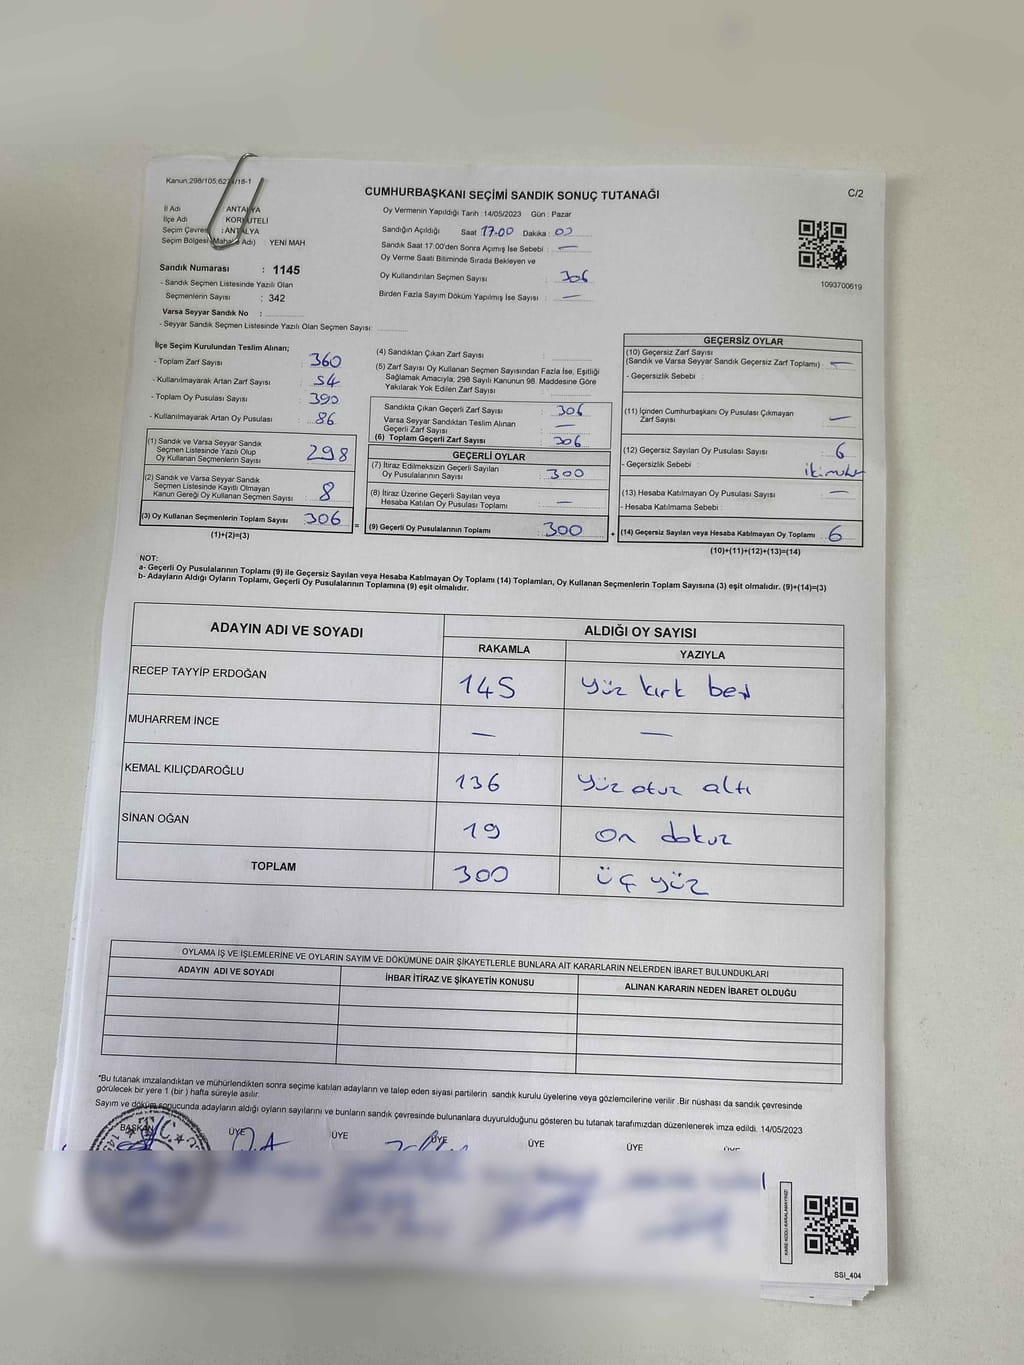 Kanun.298/105,627
/18-1
CUMHURBAŞKANI SEÇİMİ SANDIK SONUÇ TUTANAĞI
C/2
İl Adı : ANTALYA
İlçe Adı KORKUTELİ
Seçim Çevresi : ANTALYA
Seçim Bölgesi (Mahalle Adı) YENİ MAH
Oy Vermenin Yapıldığı Tarih :14/05/2023 Gün : Pazar
Sandığın Açıldığı Saat 17-00 Dakika : 00
Sandık Saat 17:00'den Sonra Açımış İse Sebebi : —
Oy Verme Saati Bitiminde Sırada Bekleyen ve
Oy Kullandırılan Seçmen Sayısı : 306
Birden Fazla Sayım Döküm Yapılmış İse Sayısı : —
1093700619
Sandık Numarası : 1145
- Sandık Seçmen Listesinde Yazılı Olan
Seçmenlerin Sayısı : 342
Varsa Seyyar Sandık No :
- Seyyar Sandık Seçmen Listesinde Yazılı Olan Seçmen Sayısı:
İlçe Seçim Kurulundan Teslim Alınan;
- Toplam Zarf Sayısı : 360
- Kullanılmayarak Artan Zarf Sayısı : 54
- Toplam Oy Pusulası Sayısı : 390
- Kullanılmayarak Artan Oy Pusulası : 86
(1) Sandık ve Varsa Seyyar Sandık
Seçmen Listesinde Yazılı Olup
Oy Kullanan Seçmenlerin Sayısı : 298
(2) Sandık ve Varsa Seyyar Sandık
Seçmen Listesinde Kayıtlı Olmayan
Kanun Gereği Oy Kullanan Seçmen Sayısı : 8
(3) Oy Kullanan Seçmenlerin Toplam Sayısı : 306
(1)+(2)=(3)
(4) Sandıktan Çıkan Zarf Sayısı :
(5) Zarf Sayısı Oy Kullanan Seçmen Sayısından Fazla İse, Eşitliği
Sağlamak Amacıyla; 298 Sayılı Kanunun 98. Maddesine Göre
Yakılarak Yok Edilen Zarf Sayısı :
Sandıkta Çıkan Geçerli Zarf Sayısı : 306
Varsa Seyyar Sandıktan Teslim Alınan
Geçerli Zarf Sayısı : —
(6) Toplam Geçerli Zarf Sayısı : 306
GEÇERLİ OYLAR
(7) İtiraz Edilmeksizin Geçerli Sayılan
Oy Pusulasının Sayısı : 300
(8) İtiraz Üzerine Geçerli Sayılan veya
Hesaba Katılan Oy Pusulası Toplamı : —
=
(9) Geçerli Oy Pusulalarının Toplamı : 300
+
GEÇERSİZ OYLAR
(10) Geçersiz Zarf Sayısı
(Sandık ve Varsa Seyyar Sandık Geçersiz Zarf Toplamı) : —
- Geçersizlik Sebebi :
(11) İçinden Cumhurbaşkanı Oy Pusulası Çıkmayan
Zarf Sayısı : —
(12) Geçersiz Sayılan Oy Pusulası Sayısı : 6
- Geçersizlik Sebebi :
(13) Hesaba Katılmayan Oy Pusulası Sayısı : —
- Hesaba Katılmama Sebebi :
(14) Geçersiz Sayılan veya Hesaba Katılmayan Oy Toplamı : 6
(10)+(11)+(12)+(13)=(14)
NOT:
a- Geçerli Oy Pusulalarının Toplamı (9) ile Geçersiz Sayılan veya Hesaba Katılmayan Oy Toplamı (14) Toplamları, Oy Kullanan Seçmenlerin Toplam Sayısına (3) eşit olmalıdır. (9)+(14)=(3)
b- Adayların Aldığı Oyların Toplamı, Geçerli Oy Pusulalarının Toplamına (9) eşit olmalıdır.
ADAYIN ADI VE SOYADI
ALDIĞI OY SAYISI
RAKAMLA YAZIYLA
RECEP TAYYİP ERDOĞAN 145 yüz kırk beş
MUHARREM İNCE — —
KEMAL KILIÇDAROĞLU 136 yüz otuz altı
SİNAN OĞAN 19 on dokuz
TOPLAM 300 üç yüz
OYLAMA İŞ VE İŞLEMLERİNE VE OYLARIN SAYIM VE DÖKÜMÜNE DAİR ŞİKAYETLERLE BUNLARA AİT KARARLARIN NELERDEN İBARET BULUNDUKLARI
ADAYIN ADI VE SOYADI İHBAR İTİRAZ VE ŞİKAYETİN KONUSU ALINAN KARARIN NEDEN İBARET OLDUĞU
*Bu tutanak imzalandıktan ve mühürlendikten sonra seçime katılan adayların ve talep eden siyasi partilerin sandık kurulu üyelerine veya gözlemcilerine verilir .Bir nüshası da sandık çevresinde
görülecek bir yere 1 (bir ) hafta süreyle asılır.
Sayım ve döküm sonucunda adayların aldığı oyların sayılarını ve bunların sandık çevresinde bulunanlara duyurulduğunu gösteren bu tutanak tarafımızdan düzenlenerek imza edildi. 14/05/2023
BAŞKAN ÜYE ÜYE ÜYE ÜYE ÜYE
SSI_404